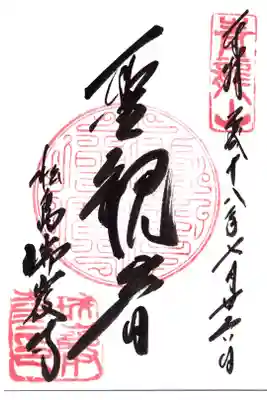 青龍山
奉拝 平成十八年七月廿六日
聖観音
松島瑞巌寺